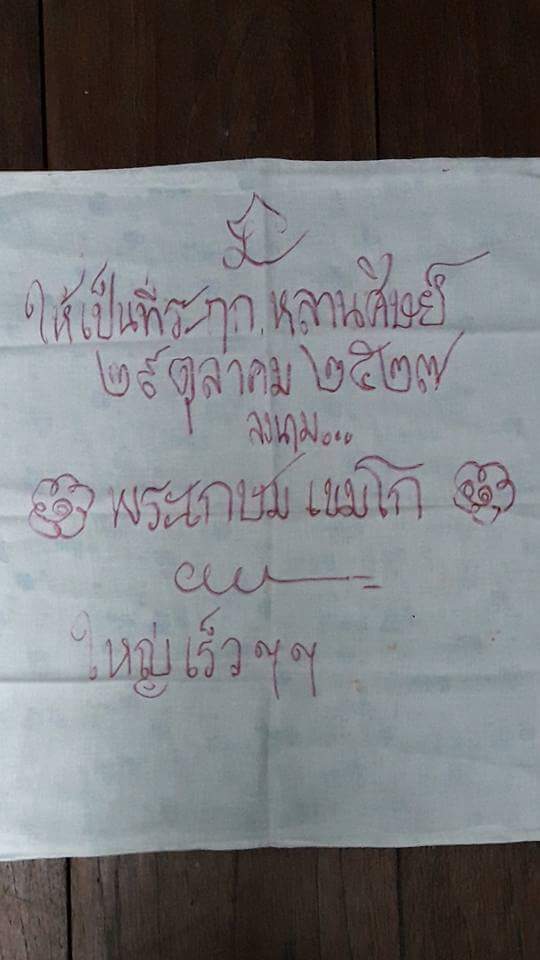 ให้เป็นที่ระฤก หลานศิษย์
๒๙ ตุลาคม ๒๕๒๗
ลงนาม...
พระเกษม เขมโก
ใหญ่ เร็ว ๆ ๆ